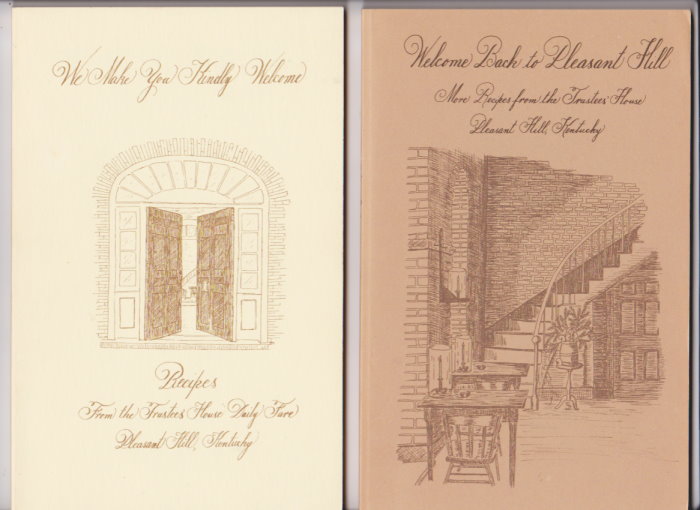 We Make You Kindly Welcome
Recipes
From the Trustees' House Daily Fare
Pleasant Hill, Kentucky
Welcome Back to Pleasant Hill
More Recipes from the Trustees' House
Pleasant Hill, Kentucky